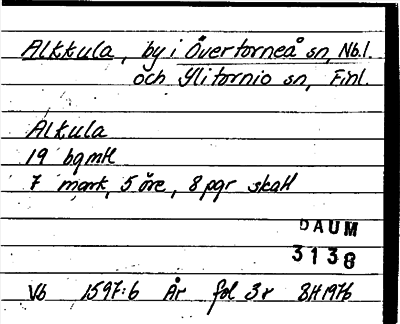 Alkkula, by i Övertorneå sn, Nb.l.
och Ylitornio sn, Finl.
Alkula
19 bgmH
7 mark, 5 öre, 8 pgr skaH
DAUM
3138
Vb 1597:6 År fol 3r BH 1976